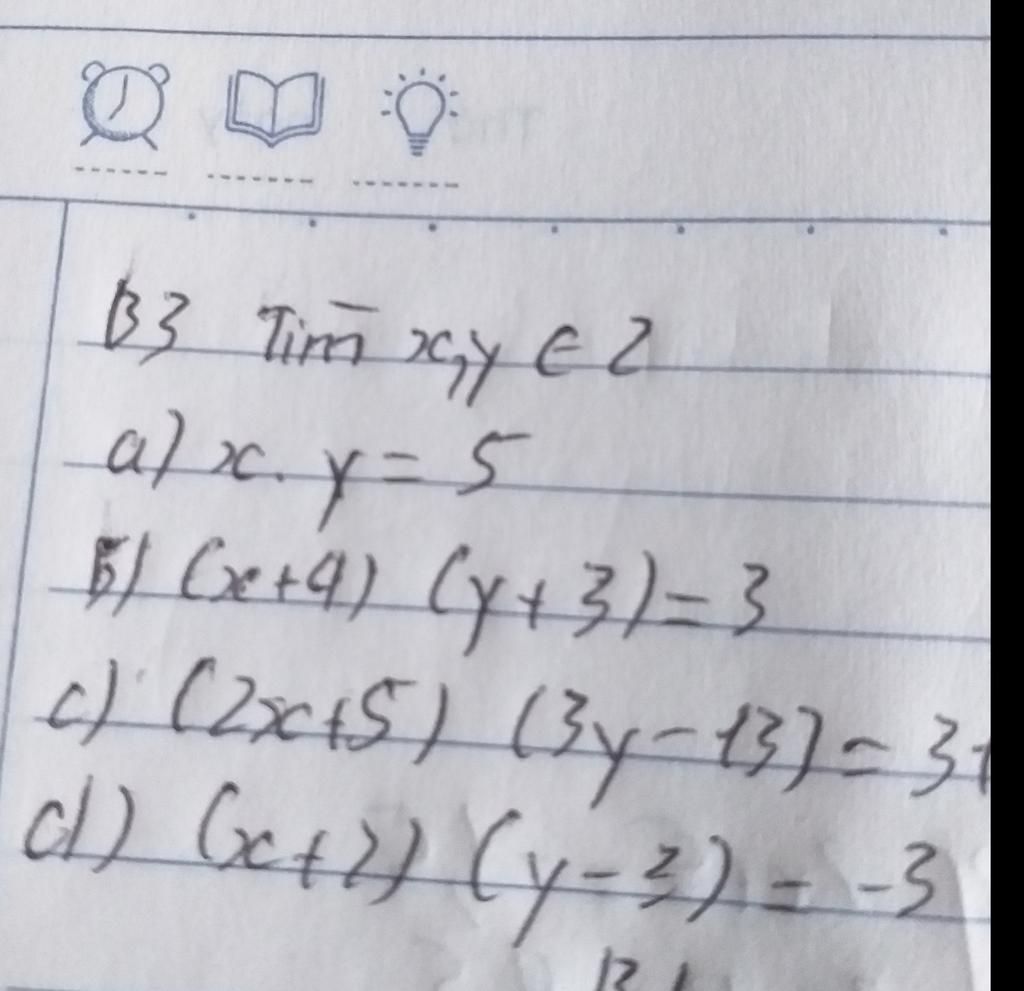 B3 Tìm x,y ∈ Z
a) x. y = 5
b) (x+4) (y+3)=3
c) (2x+5) (3y-13)= 31
d) (x+2) (y-3) = -3